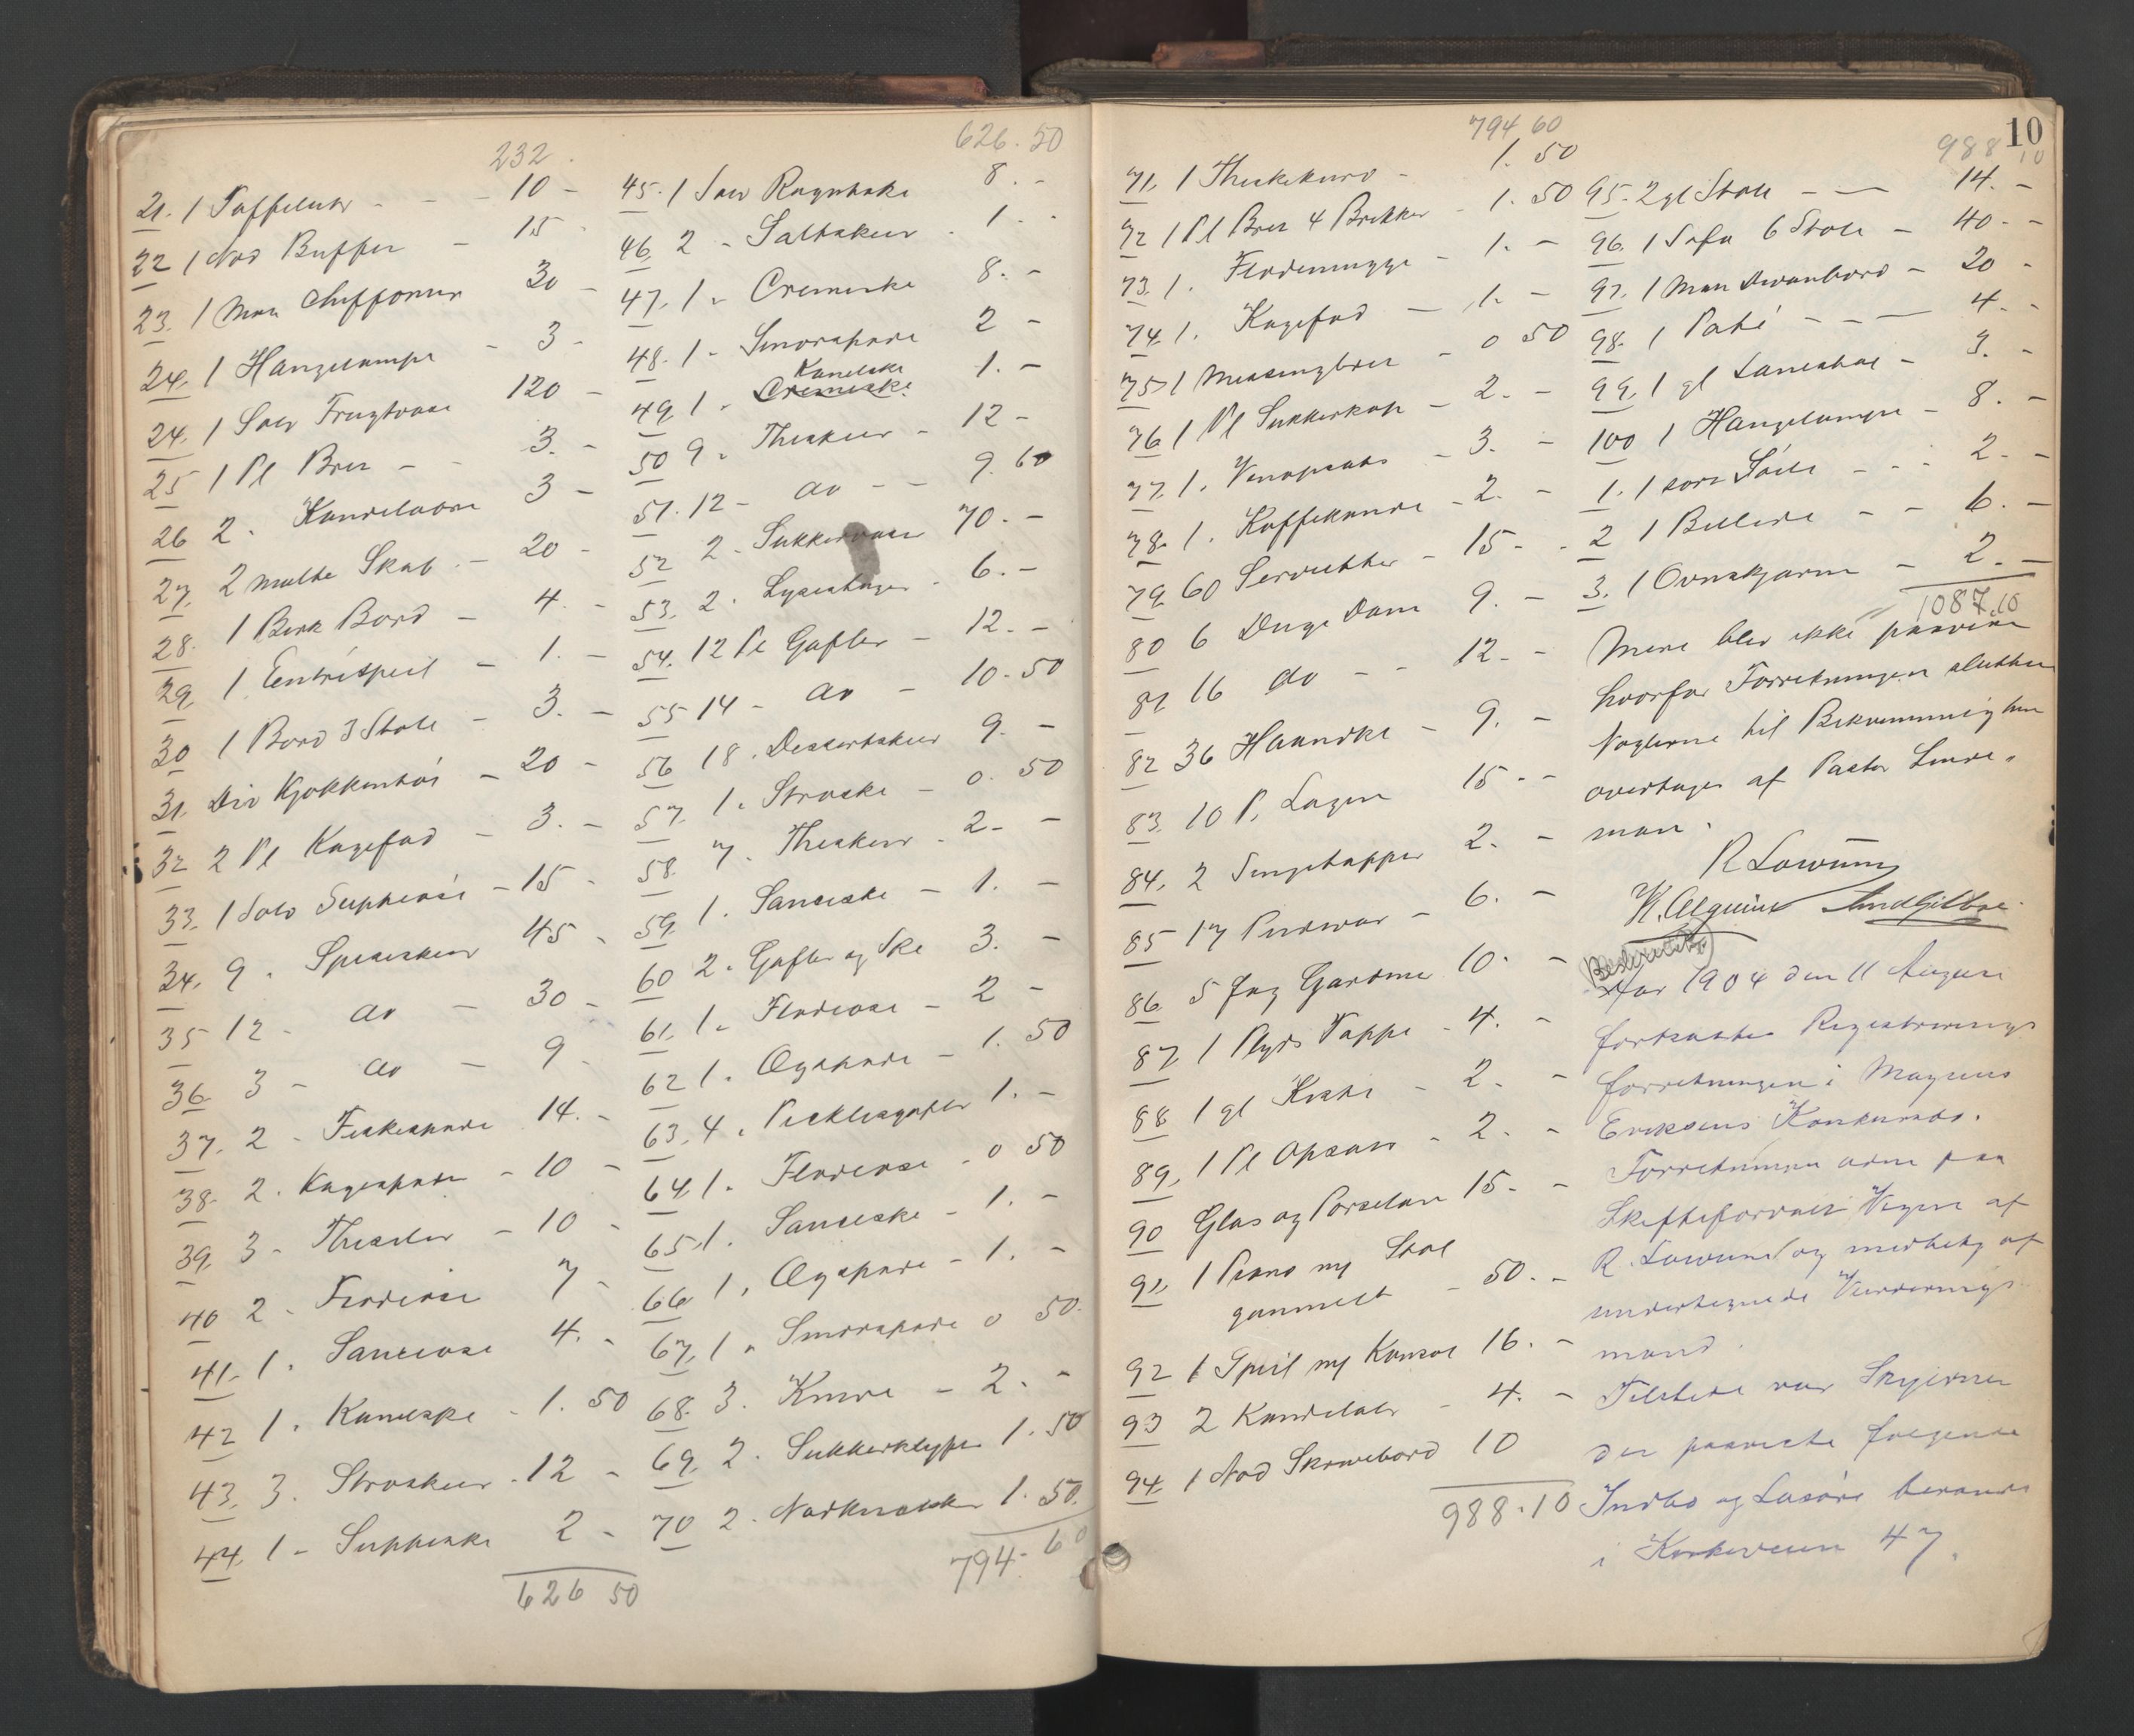 232.
21. 1 Taffeluhr - - - 10 -
22 1 Nød Buffer - 15 -
23. 1 Mah Chiffonier 30 -
24. 1 Hængelampe - 3 -
24. 1 Sølv Frugtvase 120 -
25 1 Pl Bret - - 3. -
26 2 - Kandelabre 3 -
27. 2 malte Skab. - 20 -
28. 1 Birk Bord - 4. -
29 1 Entréspeil - 1. -
30 1 Bord 3 Stole - 3. -
31. Div Kjøkkentøi - 20 -
32 2 Pl Kagefad - 3. -
33. 1 Sølv Suppeøse - 15 -
34. 9 - Spiseskeer 45 -
35 12 - do - 30 -
36. 3 - do - 9 -
37. 2 - Fiskespade 14. -
38. 2 - Kagespade - 10 -
39. 3 - Theseiler - 10 -
40 2 - Flødeøse 7 -
41. 1 - Sauceøse 4. -
42 1 - Kaneelske - 1. 50
43. 3 - Strøskeer - 12 -
44. 1 - Suppeske 2 -
626 50
626. 50
45. 1 Sølv Raguske 8. -
46. 2 - Saltskeer - 1. -
47. 1 - Cremeske 8. -
48. 1 - Smørspade 2 -
Kanelske
49. 1 - Cremeske 1. -
50 9 - Theskeer - 12 -
51. 12 - do - - 9. 60
52 2 - Sukkervase 70. -
53. 2 - Lysestager - 6. -
54. 12 Pl Gafler - 12. -
55 14 - do - 10. 50
56 18 - Dessertskeer 9. -
57. 1 - Strøske - 0. 50
58. 7 - Theskeer - 2. -
59. 1 - Sauceske - 1. -
60 2 - Gafler og Ske 3. -
61. 1 - Flødeøse - 2 -
62 1 - Øgspade - 1. 50
63. 4 - Picklesgafler 1. -
64. 1 - Flødeøse - 0 50
65. 1 - Sauceske - 1. -
66 1 - Øgspade - 1. -
67. 1 - Smørspade 0 50.
68. 3 - Knive - 2. -
69. 2 - Sukkerklype 1. 50
70 2 - Nødknækker 1. 50.
794. 60
794 60
71. 1 Theskekurv - 1. 50
72 1 Pl Bret 4 Brikker - 1. 50
73. 1 - Flødemugge - 1. -
74. 1 - Kagefad - 1. -
75 1 Messingbret - 0 50
76 1 Pl Sukkerkop - 2. -
77. 1 - Vinopsats - 3. -
78. 1 - Kaffekande - 2. -
79 60 Servietter - 15. -
80 6 Duge Dam 9. -
81 16 do - - 12. -
82 36 Haandkl - 9. -
83. 10 P. Lagen 15. -
84. 2 Sengetæpper 2. -
85 17 Pudevar - 6. -
86 5 Fag Gardiner 10. -
87 1 Plyds Tæppe - 4. -
88 1 gl Kiste - 2. -
89. 1 Pl Opsats - 2. -
90 Glas og Porselæn 15. -
91. 1 Piano m/ Stol
gammelt - 50. -
92 1 Speil m/ Konsol 16. -
93 2 Kandelabr - 4. -
94. 1 Nød Skrivebord 10
988.10
10
988 10
95. 2 gl Stole - - 14. -
96. 1 Sofa 6 Stole - 40. -
97. 1 Mah Divanbord - 20 -
98. 1 Paté - - - 4. -
99. 1 gl Lænestol - 3. -
100 1 Hængelampe - 8. -
1. 1 sort Søile - - - 2. -
2 1 Billede - - 6. -
3. 1 Ovnskjærm - 2. -
1087.10
Mere blev ikke paavist
hvorfor Forretningen sluttet
Nøglerne til Bekvemmeligheden
overtages af Pastor Linde-
man.
R Lowum
Beskrevet
Aar 1904 den 11 August
fortsattes Registrerings
forretningen i Magnus
Eriksens Konkursbo.
Forretningen adm paa
Skifteforvalt Vegne af
R. Lowum og medhelp af
undertegnede Vurderings
mand.
Tilstede var Skyldner
der paaviste følgende
Indbo og Løsøre beroende
i Kirkeveien 47.